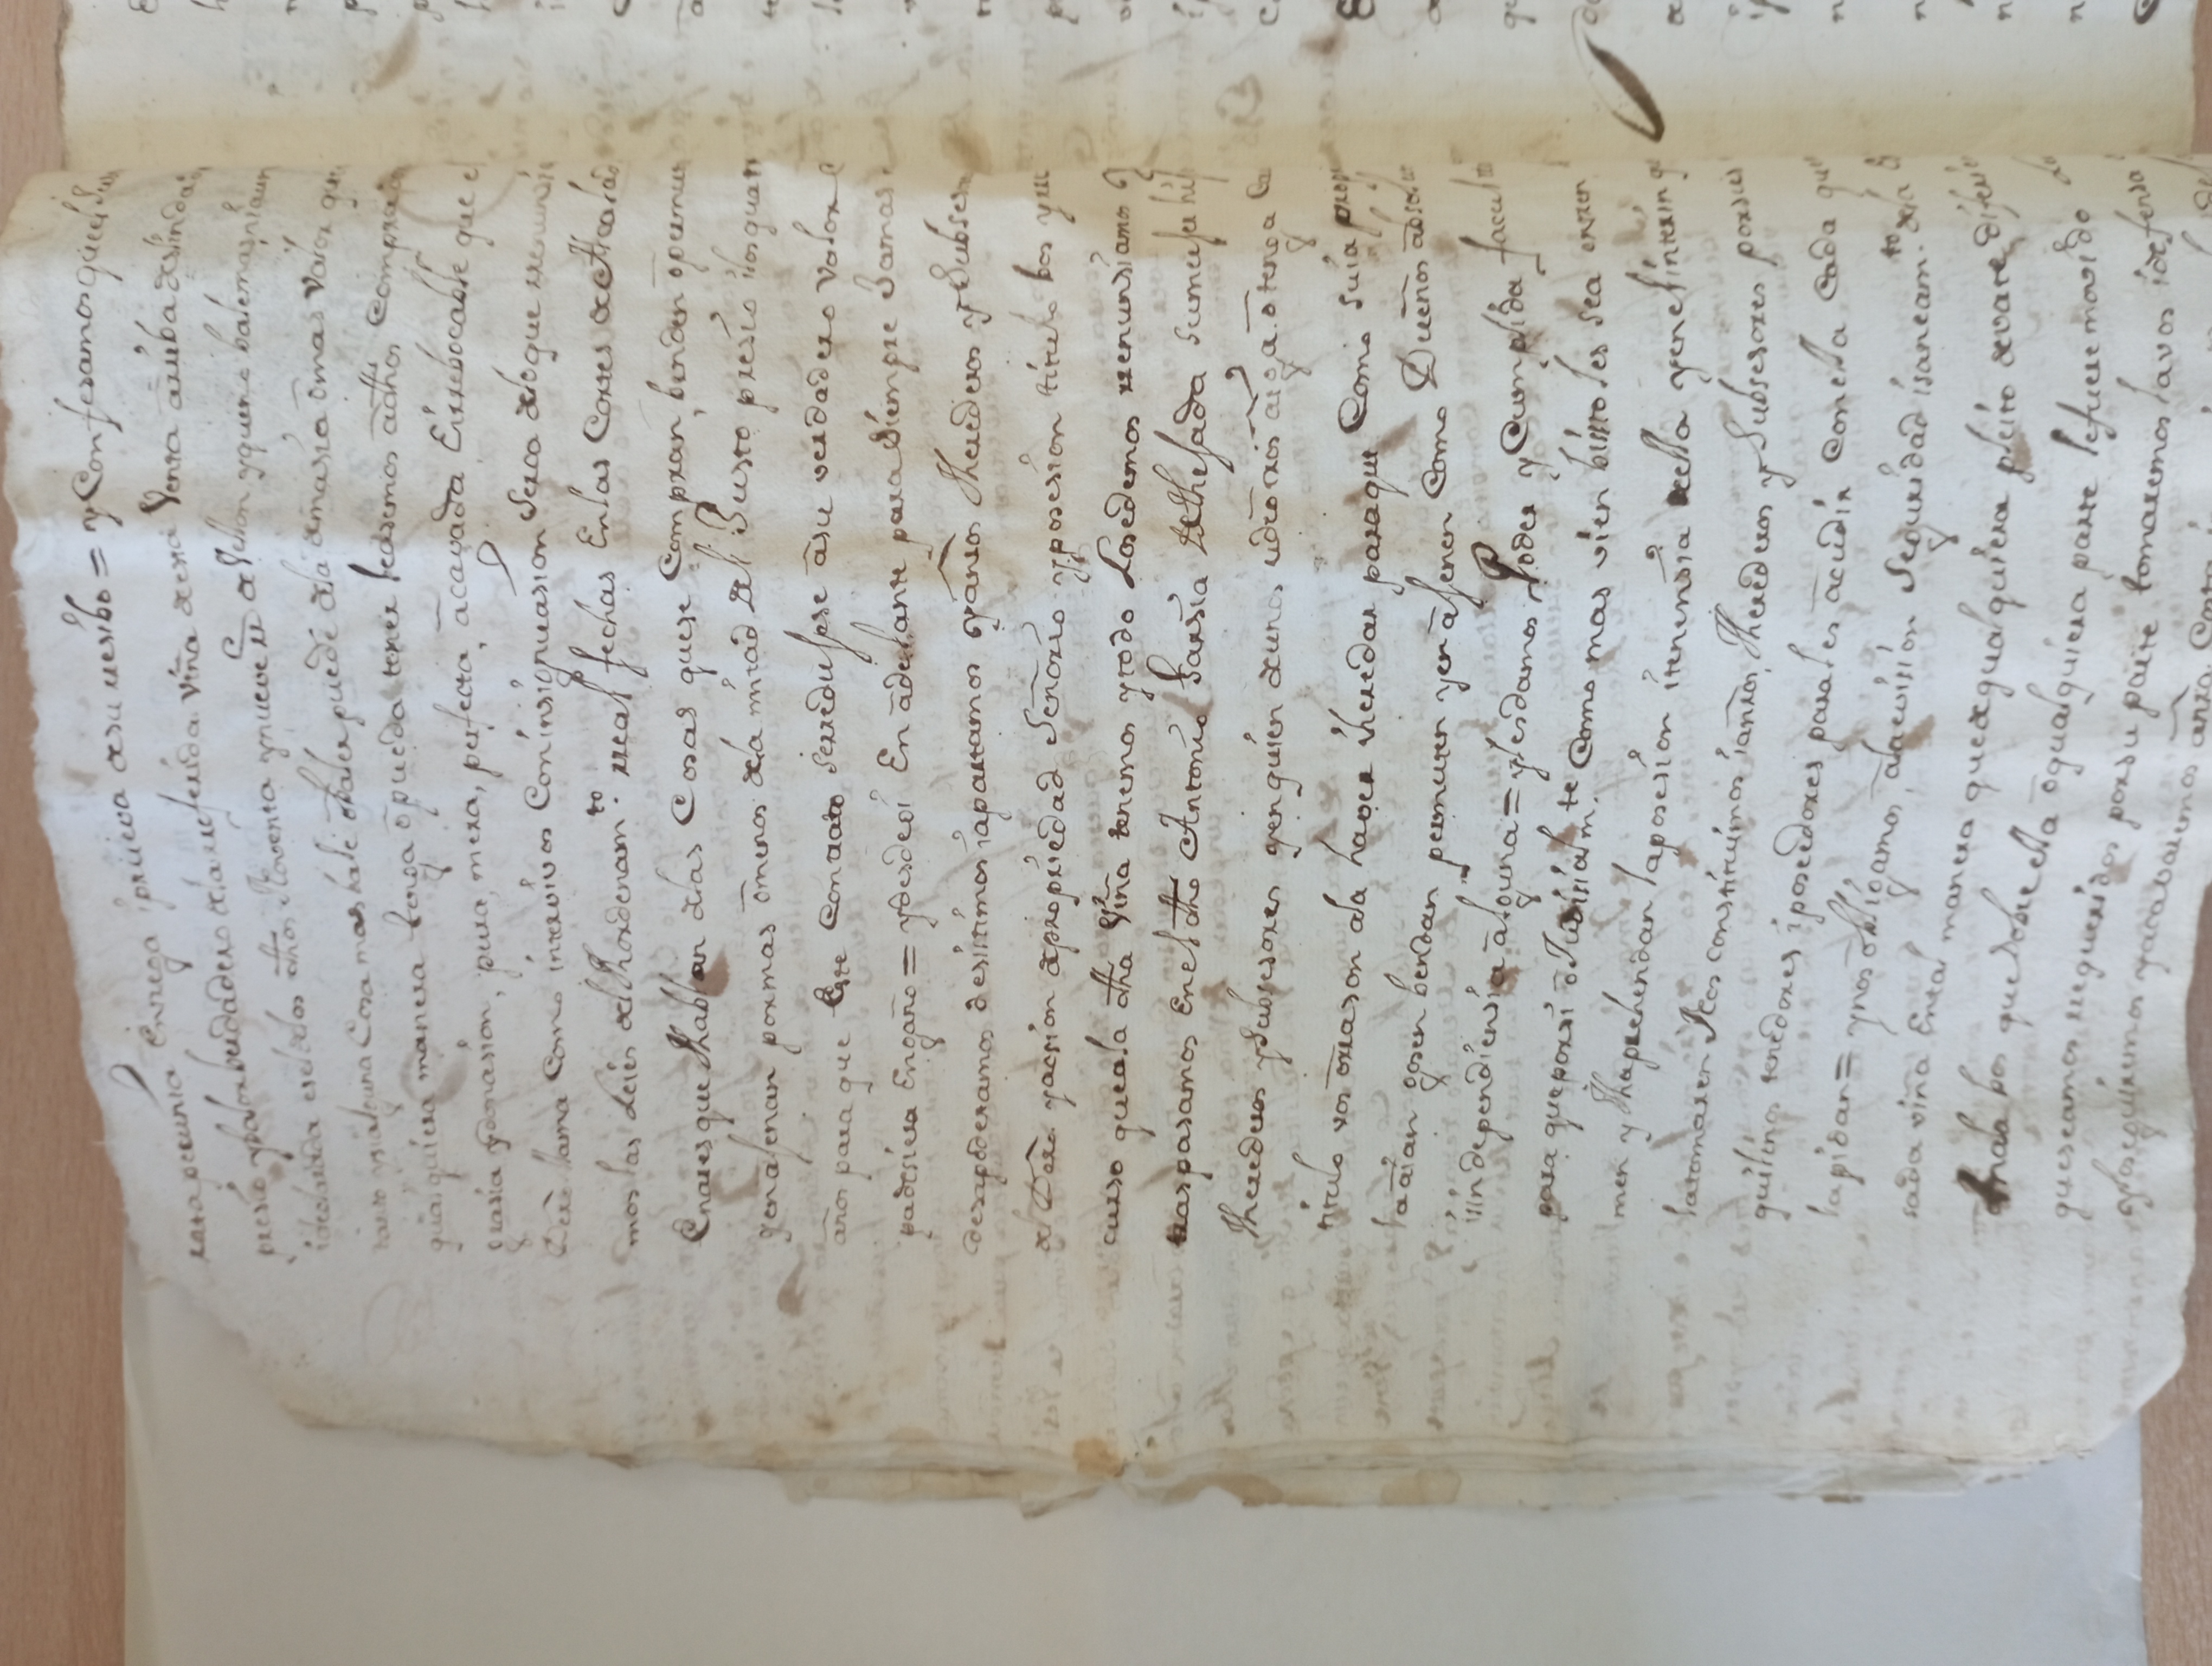 rata pecunia Entrega iprueva de su resibo = y Confesamos que el Jus
presio y balor berdadero de la rreferida viña de esta Venta arriba deslinda
ideclarada es el de los dhos Noventa y nueve rr.s de Vellon y que no bale mas ni aun
tanto y si alguna Cosa mas bale o baler puede de la demasia o mas Valor que
qualquiera manera tenga o pueda tener leasemos a dhos Comprado
grasia y donasion, pura, mera, perfecta, acavada Eirrebocable que el
Dero. llama Como intervivos Con insignuasion Serca de lo que rrenunsia
mos las Leies del Hordenam.to rreal fechas En las Cortes de Alcala de
Enares que Hablan de las Cosas que se Compran, benden o permu
y enalenan por mas o menos de la mitad del Justo presio i los quatr
años para que Este Contrato Serredusese a su verdadero Valor
padesiera Engaño = y desde oi En adelante para Siempre Jamas
desapoderamos desistimos iapartamos y a nros Herederos y Subseso
de Dero. y acsion de propriedad Señorio y posesion titulo bos y rre
curso que a la dha Viña tenemos y todo Lo sedemos rrenunsiamos y
traspasamos En el dho Antonio Garsia de Thesada su muser his
Herederos y Subsesores y en quien de unos u de otros aiga o tenga Ca
titulo vos o rrason de la haver iheredar para que Como suia propi
la aian gosen bendan permuten y en alenen Como Dueños absolu
sin dependiensia alguna = y les damos Poder y Cumplida facult
para que por si o Judisialm.te Como mas vien bisto les sea entren
men y Haprehendan la posesion itenensia de ella y en el interin q
la tomaren Nos constituimos ianros Herederos y Subsesores por sus
quilinos tenedores iposeedores para les acudir Con ella Cada que
la pidan = y nos obligamos a la evision Seguridad isaneam.to de la
sada viña En tal manera que de qualquiera pleito devate diferen
mala bos que Sobre ella o qualquiera parte le fuere movido
que seamos rrequeridos por su parte tomaremos la vos idefensa
y lo seguiremos y acavaremos a nra. Costa